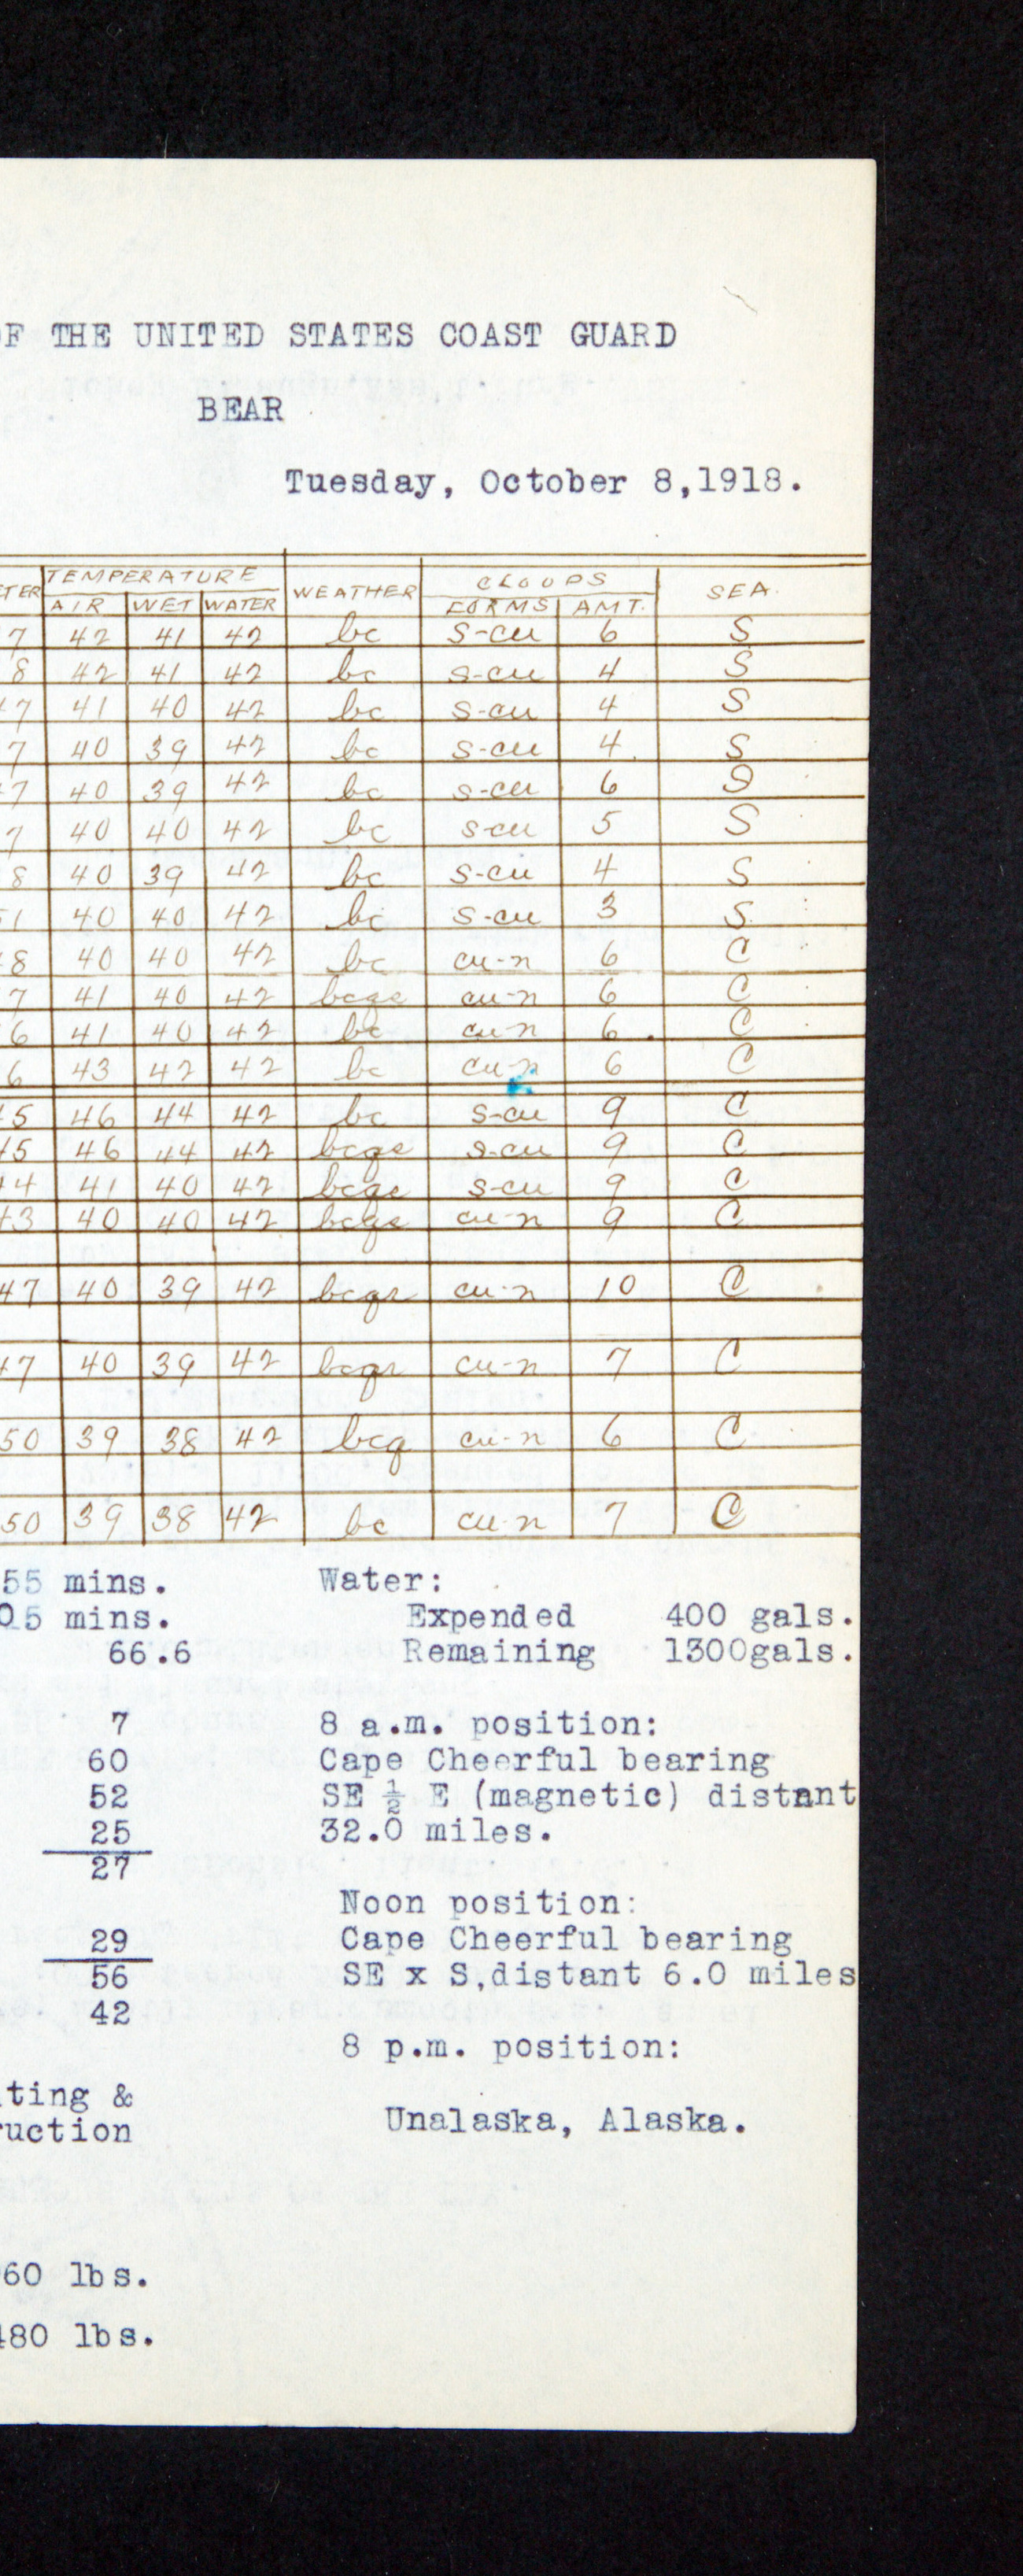 OF THE UNITED STATES COAST GUARD
BEAR
Tuesday, October 8,1918.
TEMPERATURE WEATHER CLOUDS SEA.
ETER AIR WET WATER FORMS AMT.
7 42 41 42 bc s-cu 6 S
8 42 41 42 bc s-cu 4 S
47 41 40 42 bc s-cu 4 S
7 40 39 42 bc s-cu 4 S
47 40 39 42 bc s-cu 6 S
7 40 40 42 bc s-cu 5 S
8 40 39 42 bc s-cu 4 S
51 40 40 42 bc s-cu 3 S
48 40 40 42 bc cu-n 6 C
7 41 40 42 bcqs cu-n 6 C
6 41 40 42 bc cu-n 6 C
6 43 42 42 bc cu-n 6 C
45 46 44 42 bc s-cu 9 C
45 46 44 42 bcqs s-cu 9 C
44 41 40 42 bcqs s-cu 9 C
43 40 40 42 bcqs cu-n 9 C
47 40 39 42 bcqr cu-n 10 C
47 40 39 42 bcqr cu-n 7 C
50 39 38 42 bcq cu-n 6 C
50 39 38 42 bc cu-n 7 C
55 mins. Water:
05 mins. Expended 400 gals.
66.6 Remaining 1300gals.
7 8 a.m. position:
60 Cape Cheerful bearing
52 SE ½ E (magnetic) distant
25 32.0 miles.
27
Noon position:
29 Cape Cheerful bearing
56 SE x S,distant 6.0 miles
42
8 p.m. position:
ting &
Unalaska, Alaska.
ruction
60 lbs.
480 lbs.